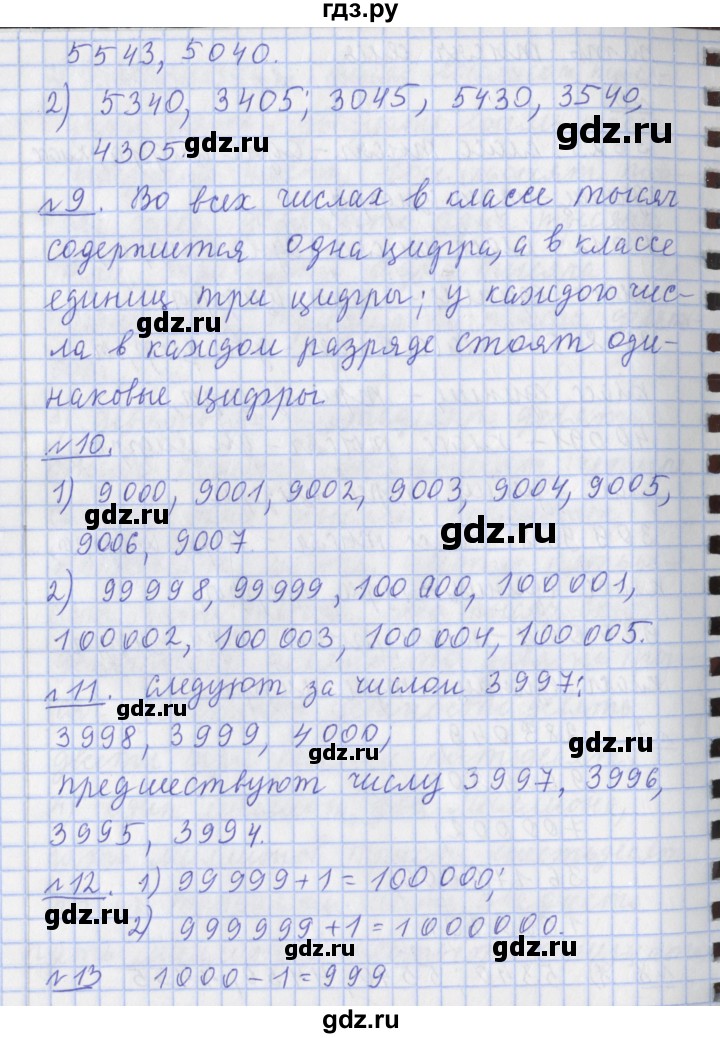 гдз.ру
5543, 5040.
2) 5340, 3405; 3045, 5430, 3540,
gdz.ru
4305.
gdz.ru
№9. Во всех числах в классе тысяч
содержится одна цифра, а в классе
единиц три цифры; у каждого чис-
gdz.ru
ла в каждом разряде стоят оди-
наковые цифры
№10.
1) 9000, 9001, 9002, 9003, 9004, 9005,
gdz.ru
gdz.ru
9006, 9007
2) 99998, 99999, 100000, 100001,
100002, 100003, 100004, 100005.
№11. Следуют за числом 3997:
gdz.ru
3998, 3999, 4000,
gdz.ru
gdz.ru
предшествуют числу 3997, 3996,
3995, 3994.
№12. 1) 99999+1=100000;
gdz.ru
2) 999999+1=1000000.
gdz.ru
gdz.ru
№13 1000-1=999
gdz.ru